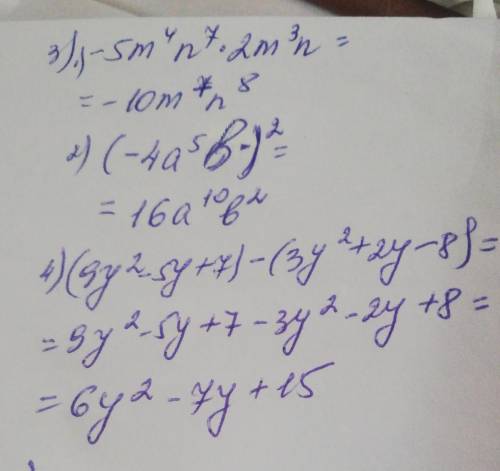 3) 1) -5m⁴n⁷·2m³n =
= -10m⁷n⁸
2) (-4a⁵b)² =
= 16a¹⁰b²
4) (9y²-5y+7)-(3y²+2y-8) =
= 9y²-5y+7-3y²-2y+8 =
= 6y²-7y+15